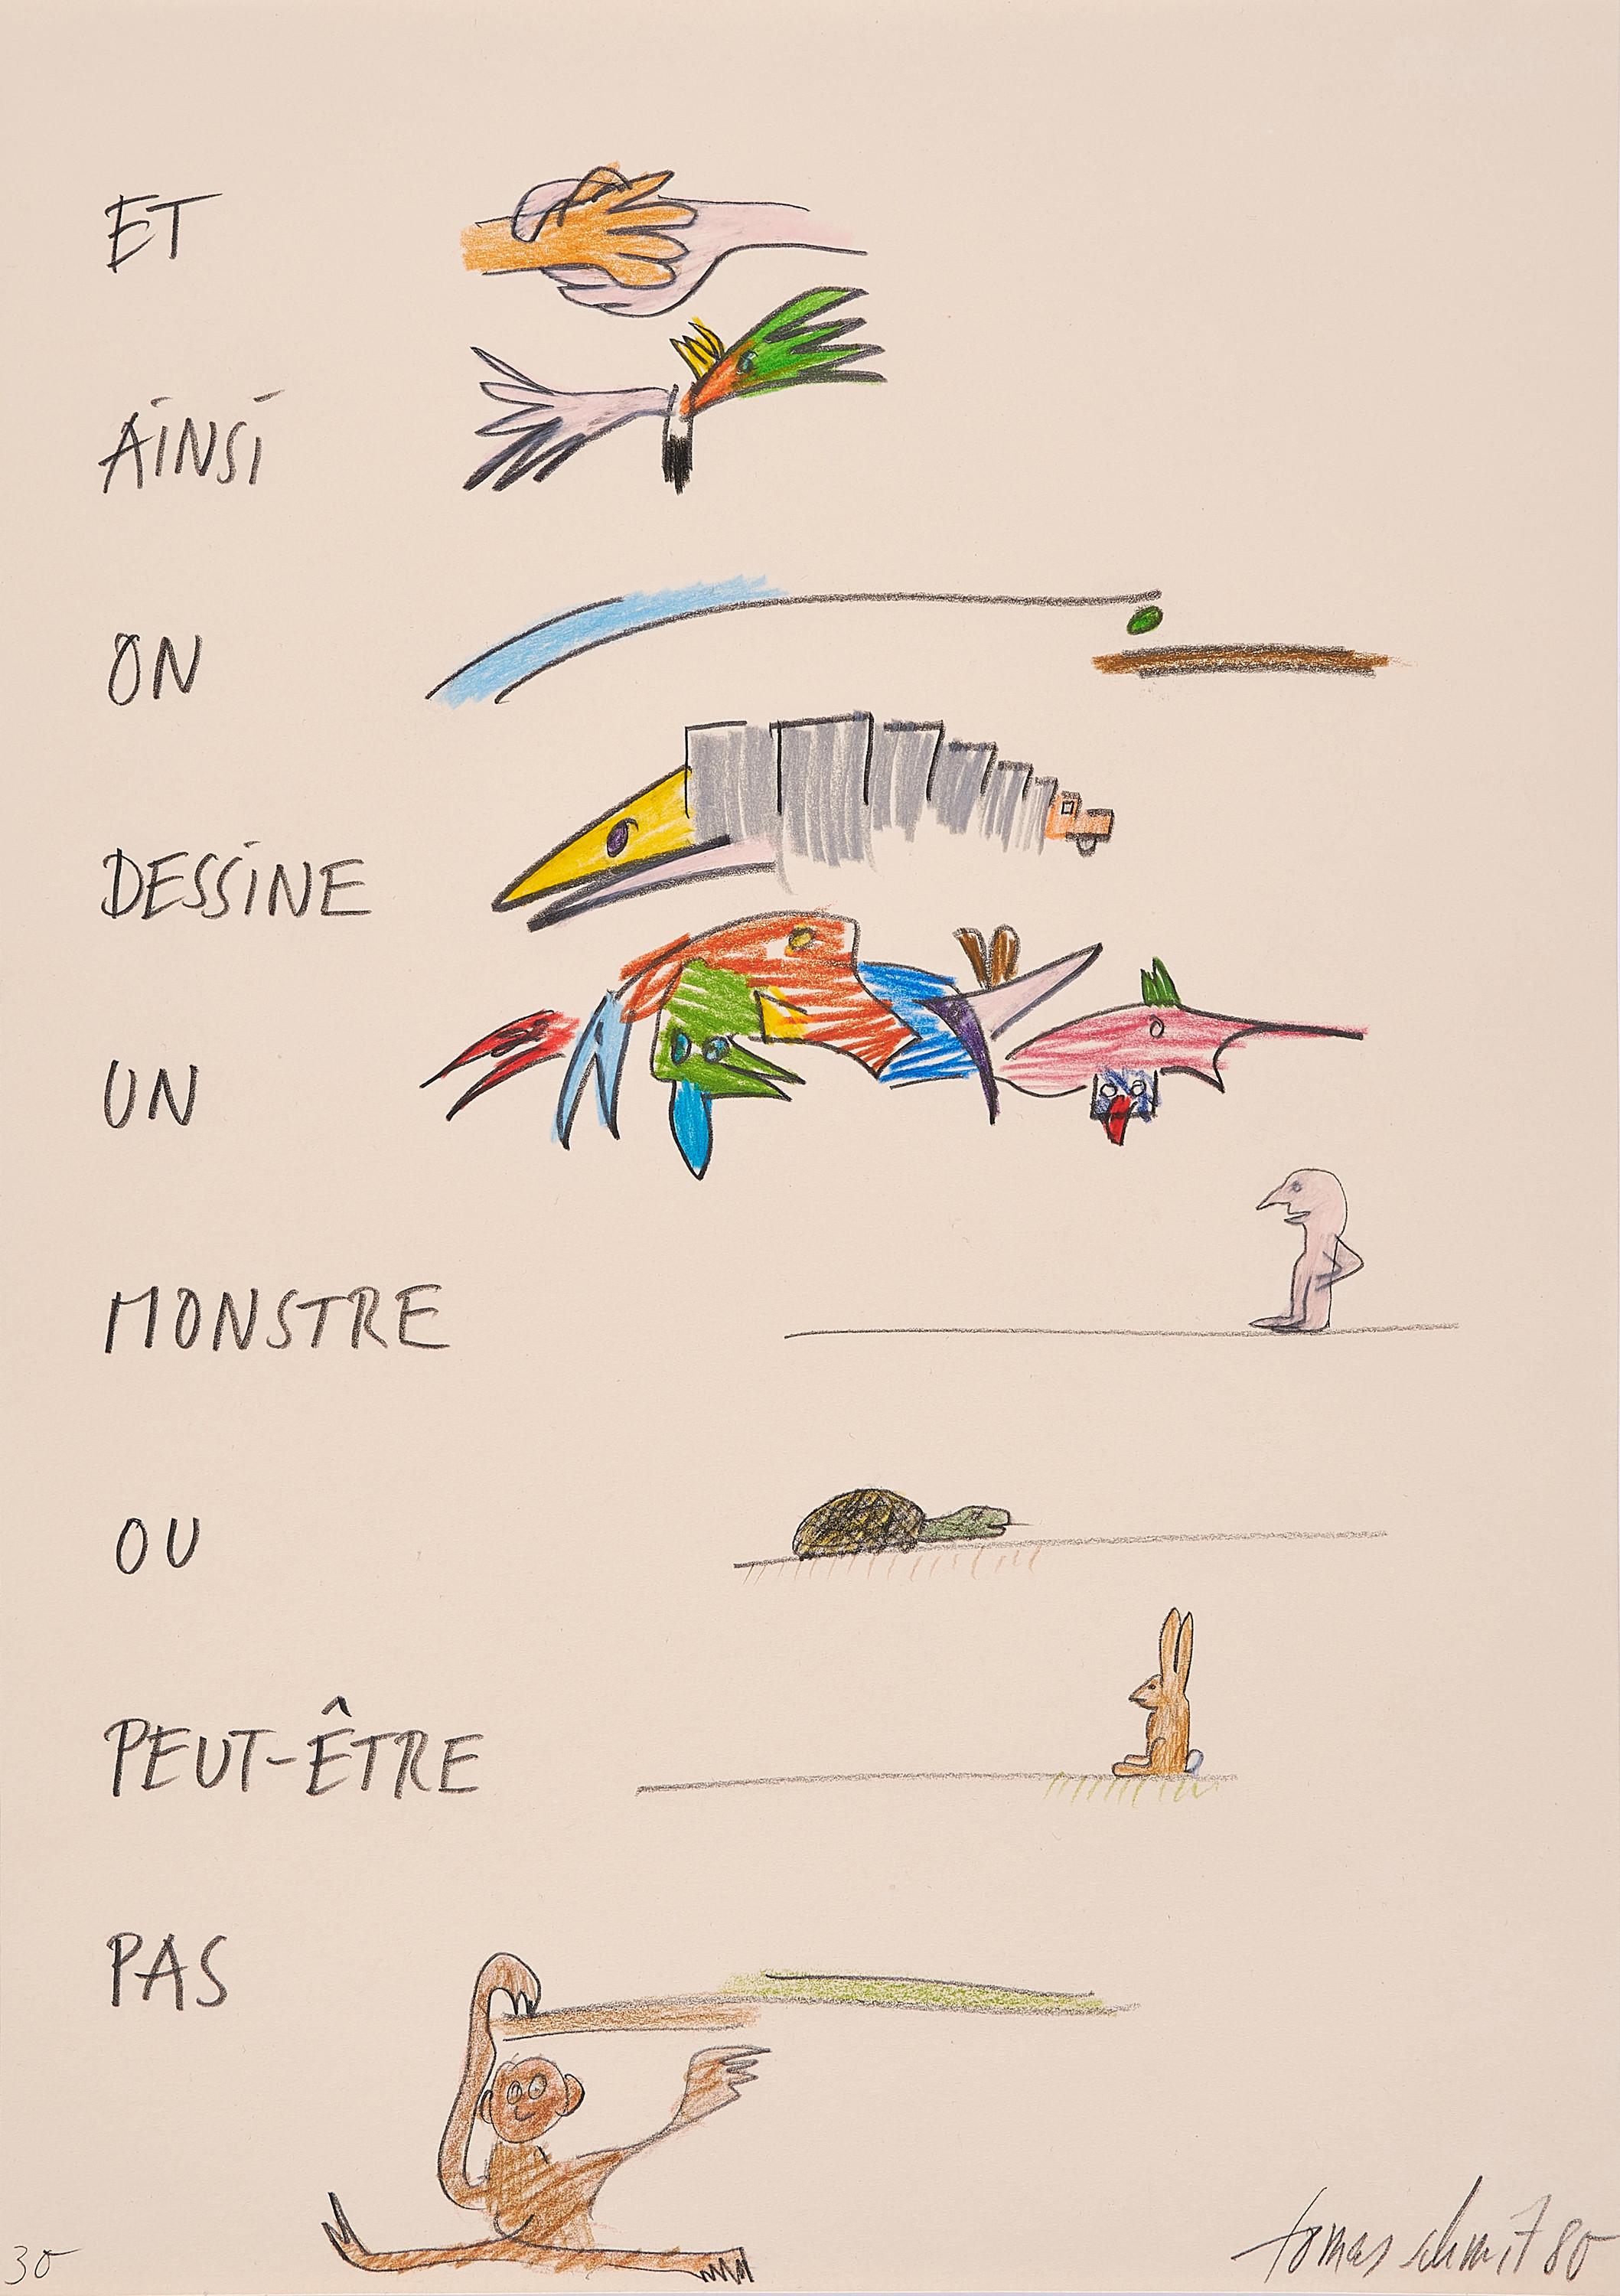 ET
AINSI
ON
DESSINE
UN
MONSTRE
OU
PEUT-ÊTRE
PAS
30
tomas schmit 80